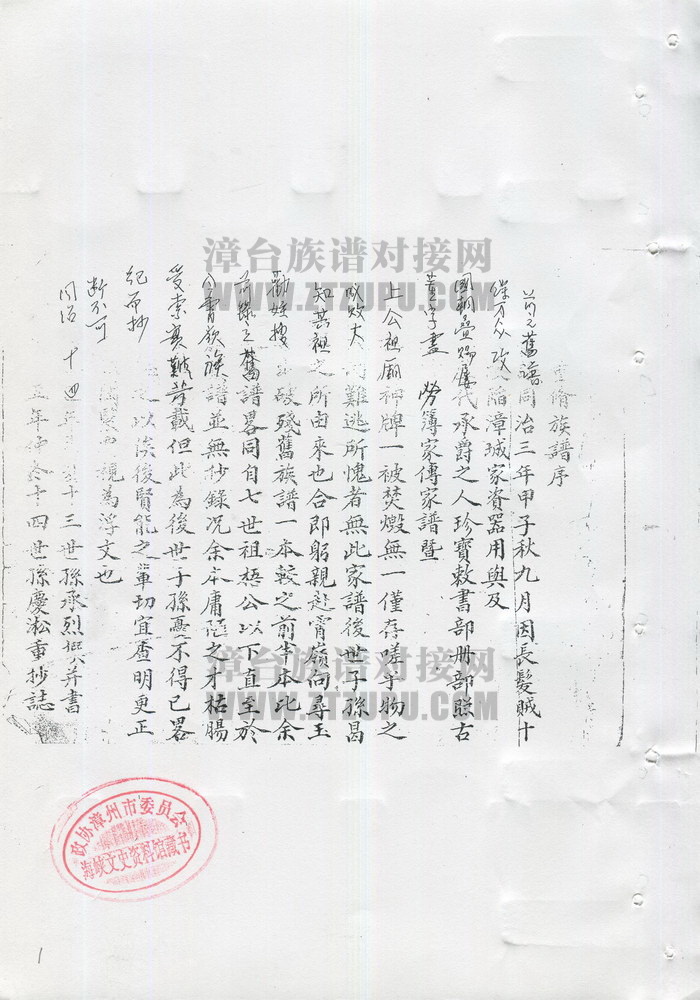 脩族譜序
舊譜同治三年甲子秋九月因長髮賊十
餘万众攻陷漳城家資器用與及
國朝疊賜歷代承爵之人珍寶敕書部冊部照古
字畫 勞簿家傳家譜暨
上公祖廟神牌一被焚燬無一僅存嗟乎物之
大 難逃所愧者無此家譜後世子孫曷
知其祖之所由來也合即躬親赴霄嶺向尋玉
勸姪搜 破殘舊族譜一本較之前本本此余
前錄之舊譜畧同自七世祖梧公以下直至於
霄嶺族譜並無抄錄况余本庸陋之才枯腸
受索實艱苦載但此為後世子孫憂不得已畧
紀而抄 之以俟後賢能之軰切宜查明更正
斷不可 視為浮文也
同治十四年 十三世孫承烈 并書
五年 十四世孫慶淞重抄誌
漳台族谱对接网
WWW.ZTZUPU.COM
漳台族谱对接网
WWW.ZTZUPU.COM
政协漳州市委员会
海峡文史资料馆藏书
1